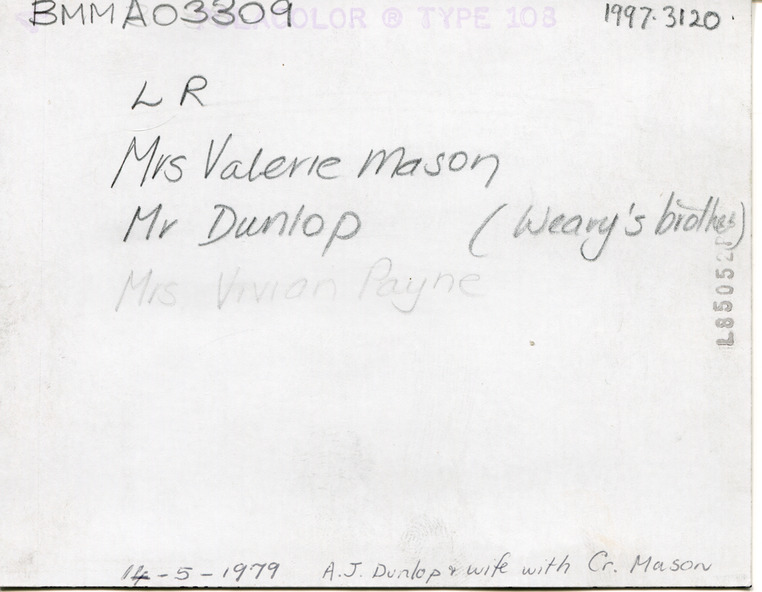 BMMA03309
POLACOLOR ® TYPE 108
1997.3120.
L R
Mrs Valerie Mason
Mr Dunlop (Weary's brother)
Mrs Vivian Payne
14-5-1979 A.J. Dunlop & wife with Cr. Mason